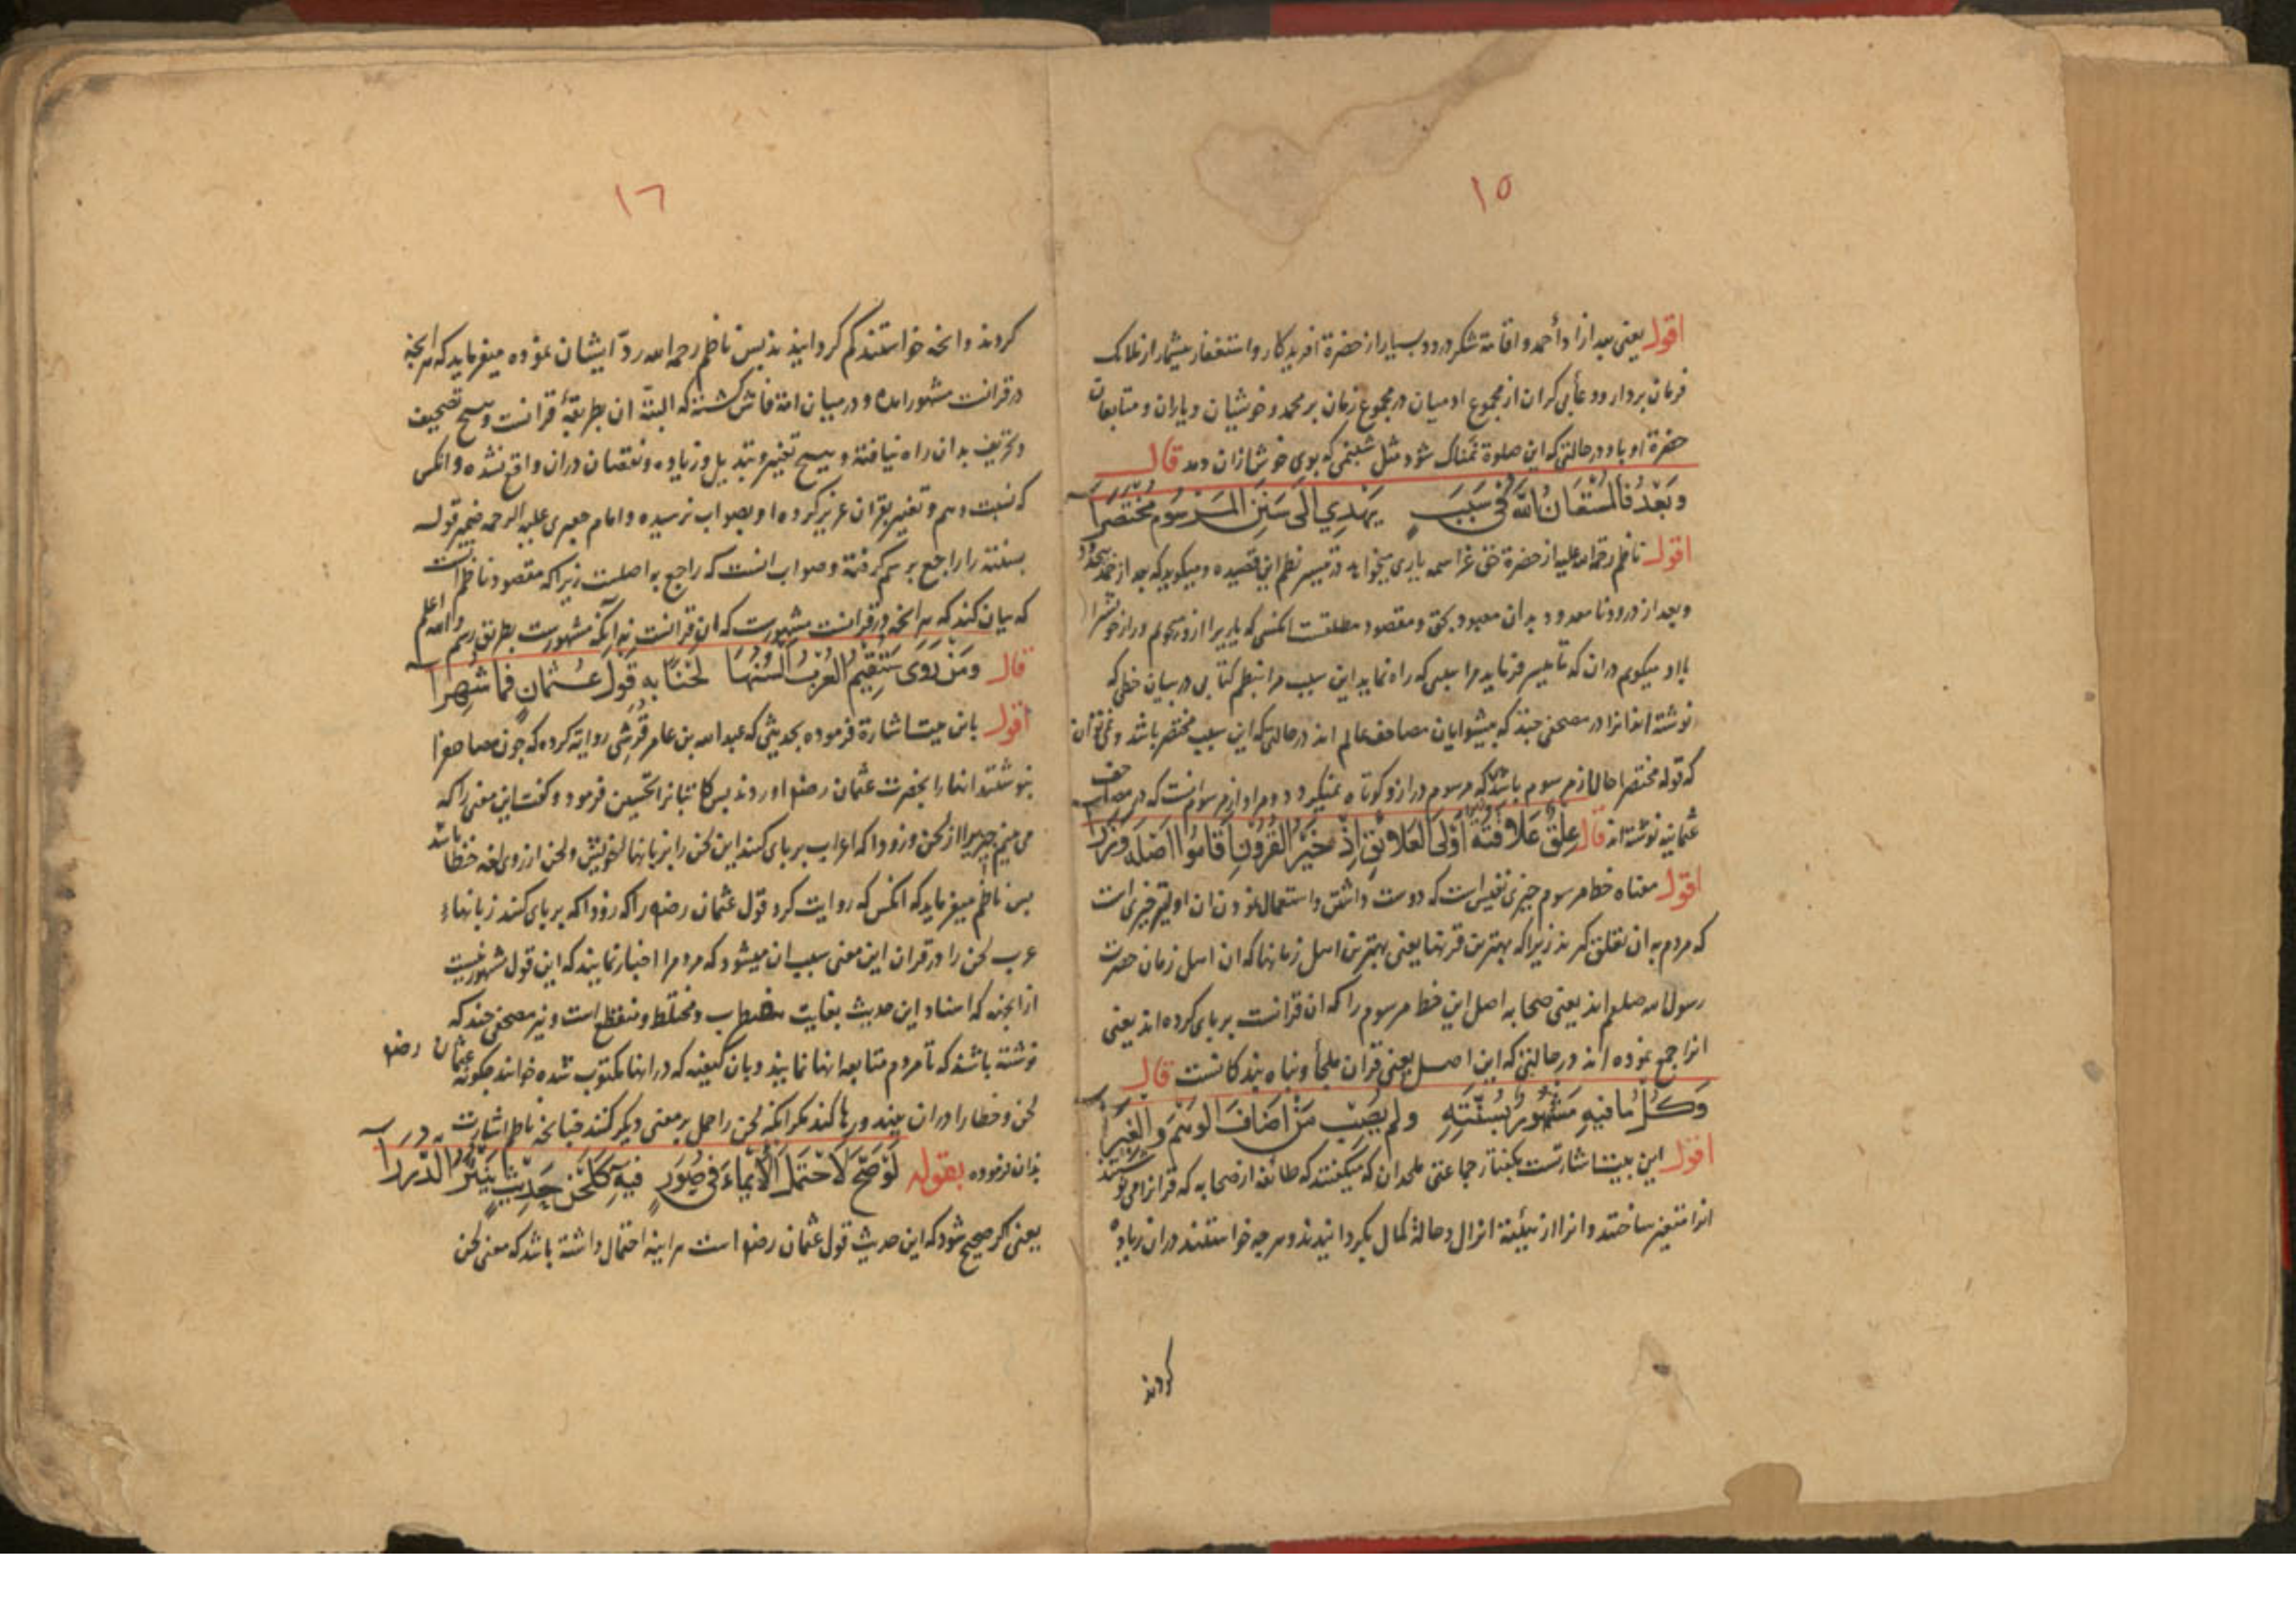 ١٥
اقول یعنی بعد از اداء حمد و اقامة شکر درود بسیار از حضرة افریدکار و استغفار بیشمار از ملائک
فرمان بردار و دعاء بی کران از مجموع ادمیان در مجموع زمان بر محمد و خویشان و یاران و متابعان
حضرة او باد در حالتی که این صلوة نمناک شود مثل شبنمی که بوی خوش ازان دمد قال
وَبَعْدُ فَالْمُسْتَعَانُ اللّٰهُ فِی سَبَبٍ یَهْدِی اِلَی سَنَنِ الْمَرْسُومِ مُخْتَصَرَا
اقول ناظم رحمة الله علیه از حضرة حق عز اسمه یاری میخواهد در تیسیر نظم این قصیده و میکوید که بعد از حمد نامحدود
و بعد از درود نامعدود بدان معبود بحق و مقصود مطلقست انکسی که یاریرا ازو میجویم و راز خویشرا
با او میکویم دران که تا میسر فرماید مرا سببی که راه نماید این سبب مرا بنظم کتابی در بیان خطی که
نوشته اند انرا در مصحفی جند که پیشوایان مصاحف عالم اند در حالتی که این سبب مختصر باشد و نمی توان
که قوله مختصرا حال از مرسوم باشد که مرسوم دراز و کوتاه نمیکردد و مراد از مرسوم انست که در مصاحف
عثمانیه نوشته اند قال عِلْقٌ عَلَاقَتُهُ اَوْلَی الْعَلَائِقِ اِذْ خَیْرُ الْقُرُونِ اَقَامُوا اَصْلَهُ وَزَرَا
اقول معناه خط مرسوم جیزی نفیس است که دوست داشتن و استعمال نمودن ان اولیتر جیزی است
که مردم به ان تعلق کیرند زیرا که بهترین قرنها یعنی بهترین اهل زمانها که ان اهل زمان حضرت
رسول الله صلعم اند یعنی صحابه اصل این خط مرسوم را که ان قرانست بر پای کرده اند یعنی
انرا جمع نموده اند در حالتی که این اصل یعنی قران ملجأ و پناه بندکانست قال
وَکُلُّ مَا فِیهِ مَشْهُورٌ بِسُنَّتِهِ وَلَمْ یُصِبْ مَنْ اَضَافَ الْوَهْمَ وَالْغِیَرَا
اقول این بیت اشارتست بکفتار جماعتی ملحدان که میکفتند که طائفه از صحابه که قرانرا می نوشتند
انرا متغیر ساختند و انرا از هیئت انزال و حالة کمال بکردانیدند و هرجه خواستند دران زیاده
کردند
١٦
کردند و انجه خواستند کم کردانیدند پس ناظم رحمه الله ردّ ایشان نموده میفرماید که هر انجه
در قرانست مشهور امده و در میان امة فاش کشته که البته ان بطریقهٔ قرانست و هیچ تصحیف
و تحریف بدان راه نیافته و هیچ تغییر و تبدیل و زیاده و نقصان دران واقع نشده و انکس
که نسبت وهم و تغییر بقران عزیز کرده او بصواب نرسیده و امام جعبری علیه الرحمه ضمیر قوله
بسنته را راجع برسم کرفته و صواب انست که راجع به اصلست زیرا که مقصود ناظم انست
که بیان کند که هر انجه در قرانست مشهورست که ان قرانست نه انکه مشهورست بطریق رسم والله اعلم
قال وَمَنْ رَوَی سَتُقِیمُ الْعُرْبُ اَلْسُنُهَا لَحْنًا بِهِ قَوْلَ عُثْمَانٍ فَمَا شُهِرَا
اقول باین بیت اشارة فرموده بحدیثی که عبدالله بن عامر قرشی روایة کرده که جون مصاحفرا
بنوشتند انها را بحضرت عثمان رضه اوردند پس کاتبانرا تحسین فرمود و کفت این معنی را که
می بینم جیزیرا از لحن و زود ا که اعراب بر پای کنند این لحن را بزبانها خویش و لحن از روی لغه خطا باشد
پس ناظم میفرماید که انکس که روایت کرد قول عثمان رضه را که زود ا که بر پای کنند زبانهاء
عرب لحن را در قران این معنی سبب ان میشود که مردم را اخبار نمایند که این قول مشهور نیست
از انجه که اسناد این حدیث بغایت مضطرب و مختلط و منقطع است و نیز مصحفی جند که
نوشته باشند که تا مردم متابعه انها نمایند و بان کیفیه که در انها مکتوب شده خوانند جکونه عثمان رضه
لحن و خطا را دران بیند و رها کند مکر انکه لحن را حمل بر معنی دیکر کنند جنانجه ناظم اشارت
بدان فرموده بقوله لَوْ صَحَّ لَاحْتَمَلَ الْاِیمَاءَ فِی صُوَرٍ فِیهِ کَلَحْنِ حَدِیثٍ یَنْثُرُ الدُّرَرَا
یعنی اکر صحیح شود که این حدیث قول عثمان رضه است هر اینه احتمال داشته باشد که معنی لحن